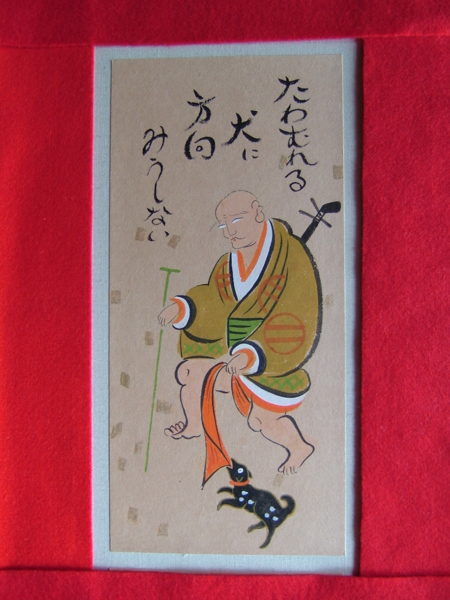 たわむれる
犬に
方向
みうしない